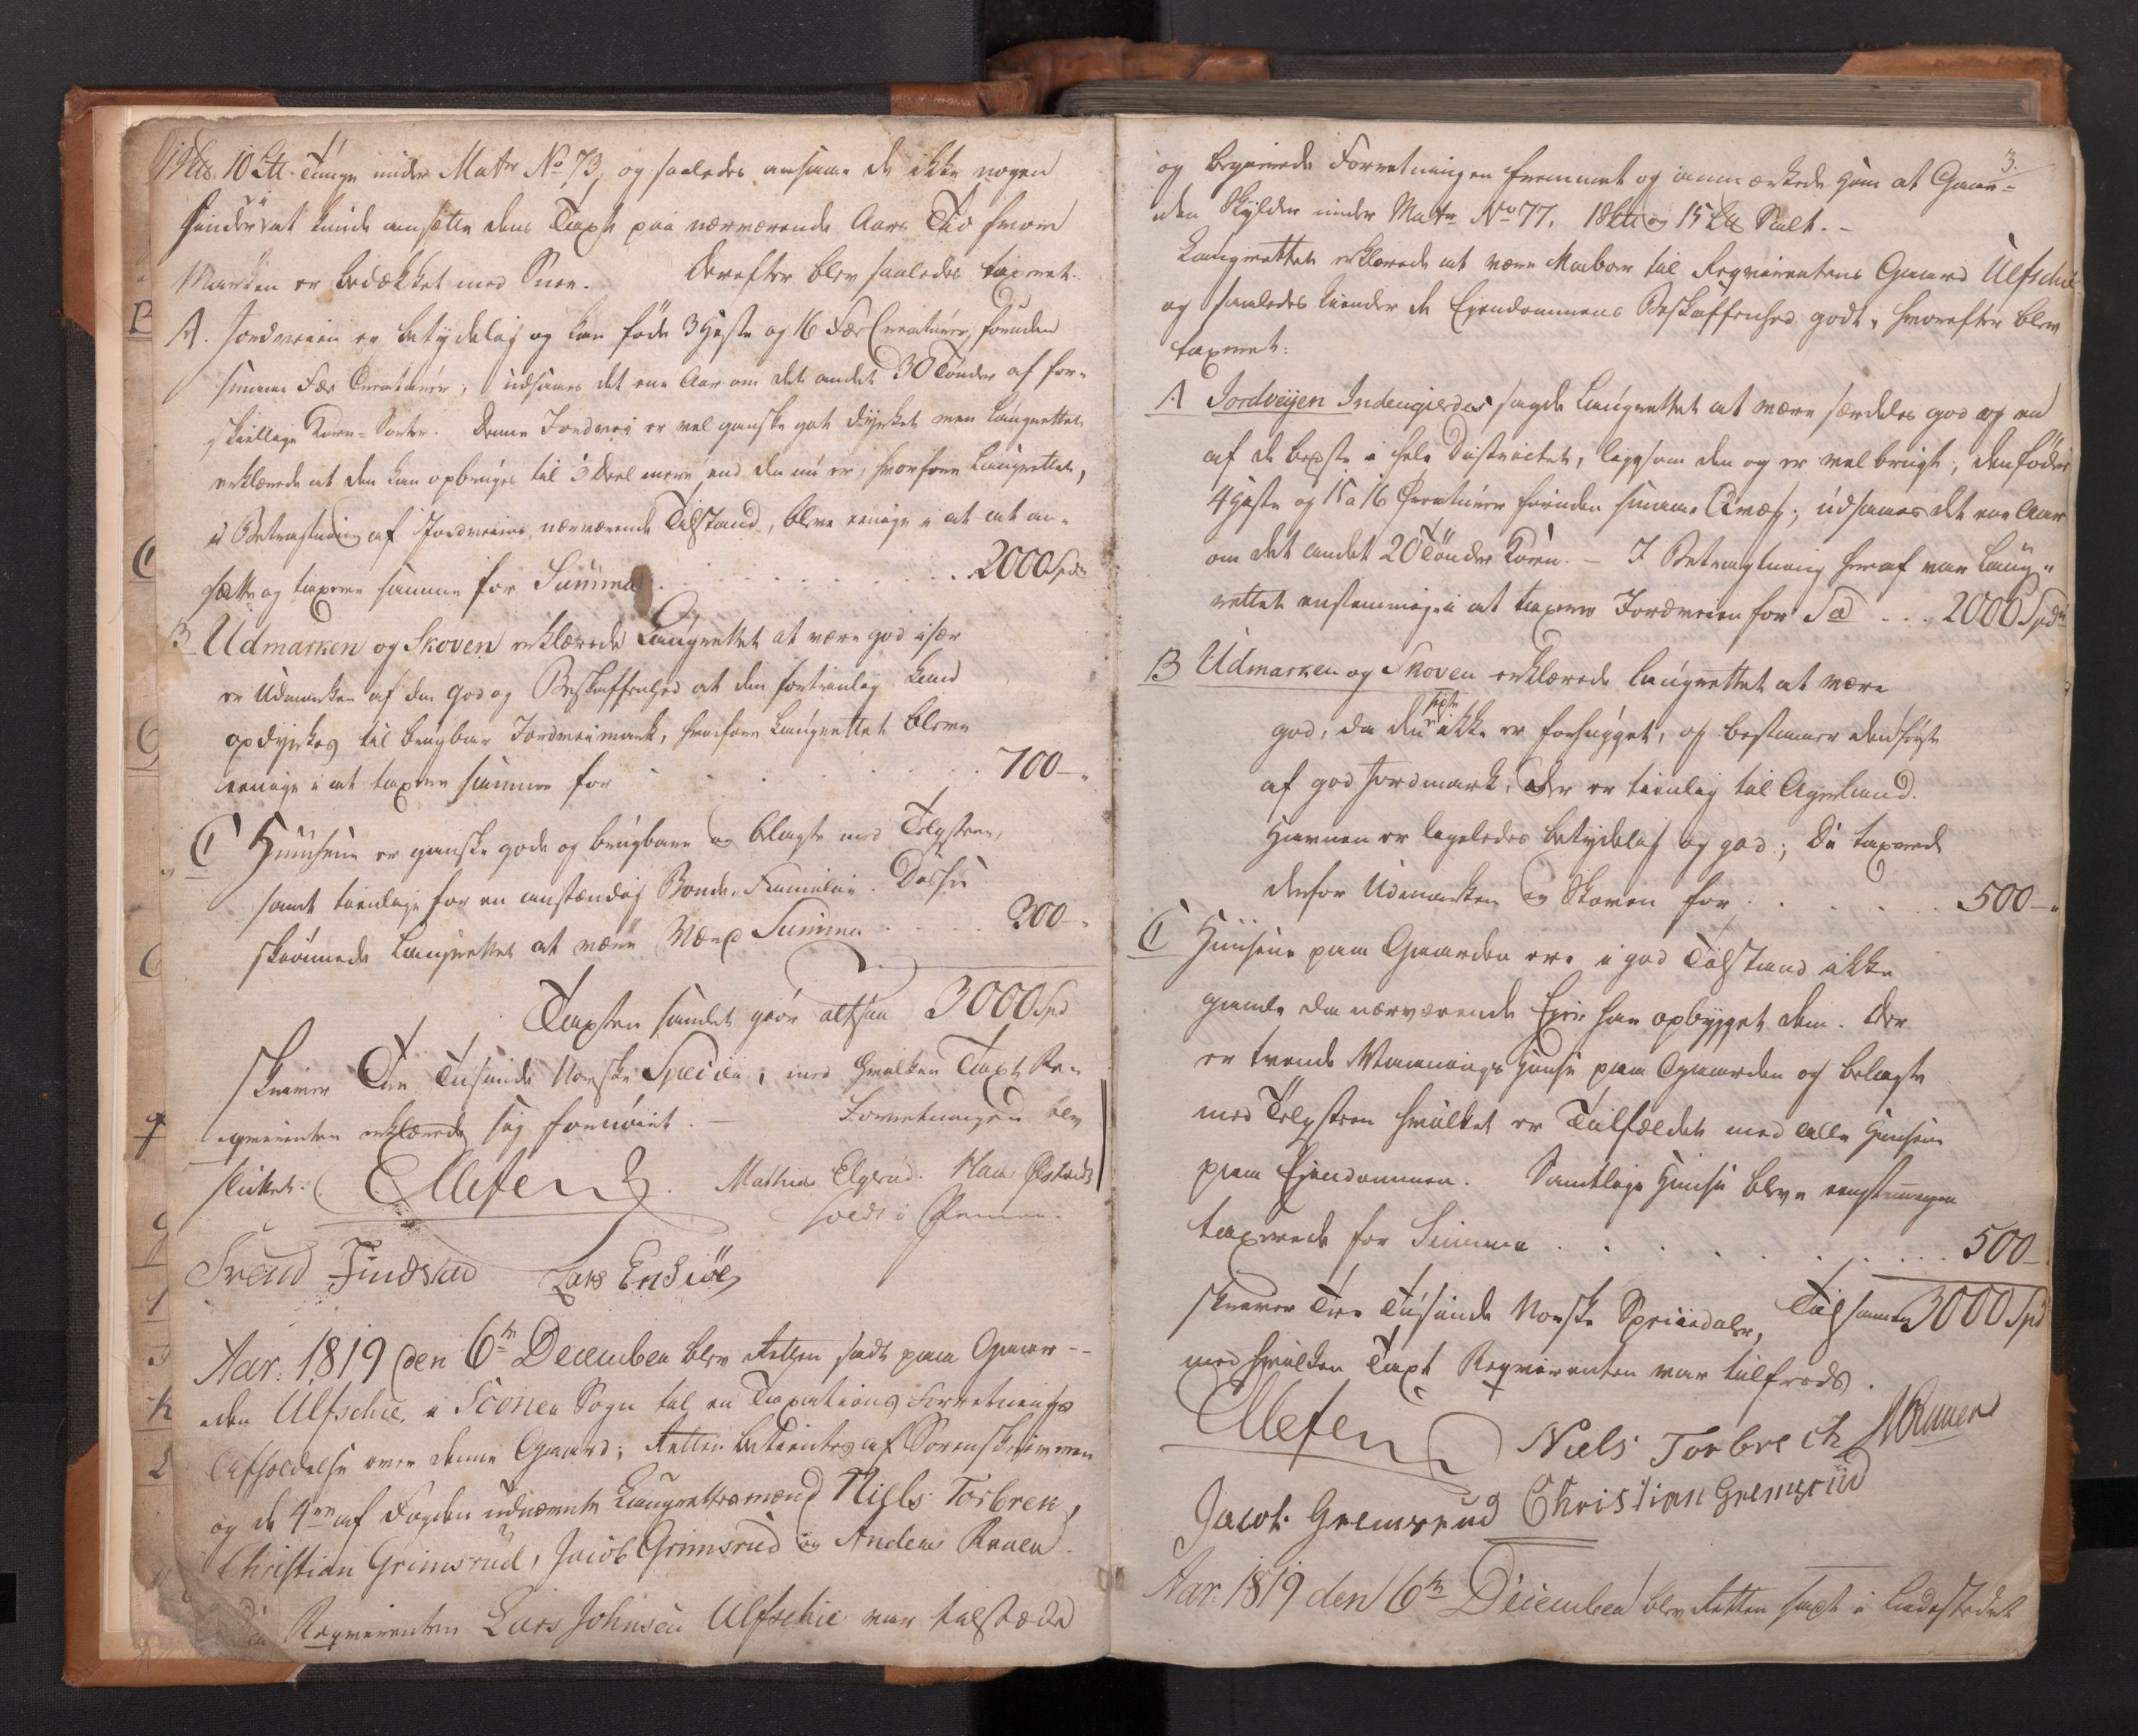 10 L℔ Tunge under Matr No 73, og saaledes ansaae de ikke nogen
hinder i at kunde ansætte dens Taxt paa nærværende Aars Tid hvor
Marken er bedækket med Snee. Derefter blev saaledes taxeret.
A. Jordveien er betydelig og kan föde 3 Heste og 16 Fæe Creaturer, foruden
smaae Fæe Creaturer, udsaaes det ene Aar om det andet 30 Tönder af for-
skiellige Korn-Sorter. Denne Jordvei er vel ganske got dyrket men Laugrettet
erklærede at den kan opbruges til 3 Deel mere end den nu er, hvorfore Laugrettet,
i Betragtning af Jordveiens nærværende Tilstand, bleve eenige i at an-
sætte og taxere samme for Summa . . . 2000 Spd
B Udmarken og Skoven erklærede Laugrettet at være god især
er Udmarken af den god og Beskaffenhed at den fortrinlig kand
opdyrkes til brugbar Jordveimark, hvorfore Laugrettet bleve
eenige i at taxere samme for . . . 700 -
C Huusene er ganske gode og brugbare og belagte med Teglsteen,
samt tienlige for en anstændig Bonde-Familie. Disse
skiönnede Laugrettet at være Værd Summa . . . 300 -
Taxten samlet giör altsaa 3000 Spd
skriver Tre Tusinde Norske Specier, med hvilken Taxt Re-
qvirenten erklærede sig fornöiet. - Forretningen blev
sluttet. Ellefsen Mathias Elgerud. Hans Ølstad
holdt i Pennen.
Svend Findstad Lars Ensiöe
Aar: 1819 den 6te December blev Retten sadt paa Gaar-
den Ulfschie, i Scones Sogn til en Taxations Forretnings
Afholdelse over denne Gaard; Retten betientes af Sorenskriveren
og de 4re af Fogden udnævnte Laugrettesmænd Niels Torbrek,
Christian Grimsrud, Jacob Grimsrud og Anders Ruuen.
Reqvirenten Lars Johnsen Ulfschie var tilstæde
3.
og begierede Forretningen fremmet og anmærkede han at Gaar-
den Skylder under Matr No 77. 1 og 15 Salt. -
Laugrettet erklærede at være Naboer til Reqvirentens Gaard Ulfschie
og saaledes kiender de Eiendommens Beskaffenhed godt, hvorefter blev
taxeret:
A Jordveyen Indengierdes sagde Laugrettet at være særdeles god og en
af de beste i hele Districtet, ligesom den og er vel brugt; den föder
4 Heste og 15 a 16 Creaturer foruden smaae Qvæg; udsaaes det ene Aar
om det andet 20 Tönder Korn. - I Betragtning heraf var Laug-
rettet enstemmige i at taxere Jordveien for Sa . . . 2000 Spdr
B Udmarken og Skoven erklærede Laugrettet at være
god, da den sidste ikke er forhugget, og bestaaer den förste
af god Jordmark, der er tienlig til Agerland.
Havnen er ligeledes betydelig og god; De taxerede
derfor Udmarken og Skoven for . . . 500 -
C Huusene paa Gaarden ere i god Tilstand ikke
gamle da nærværende Eier har opbygget dem. Der
er tvende Vaanings Huuse paa Gaarden og belagte
med Teglsteen hvilket er Tilfældet med alle Huusene
paa Eiendommen. Samtlige Huuse bleve eenstemmigen
taxerede for Summa . . . 500 -
Tilsammen 3000 Spd
skriver Tre Tusinde Norske Speciedaler,
med hvilken Taxt Reqvirenten var tilfreds.
Ellefsen Niels Torbrech ARuuen
Jacob Gremsrud Christian Gremsrud
Aar 1819 den 6te December blev Retten sadt i Ladestedet